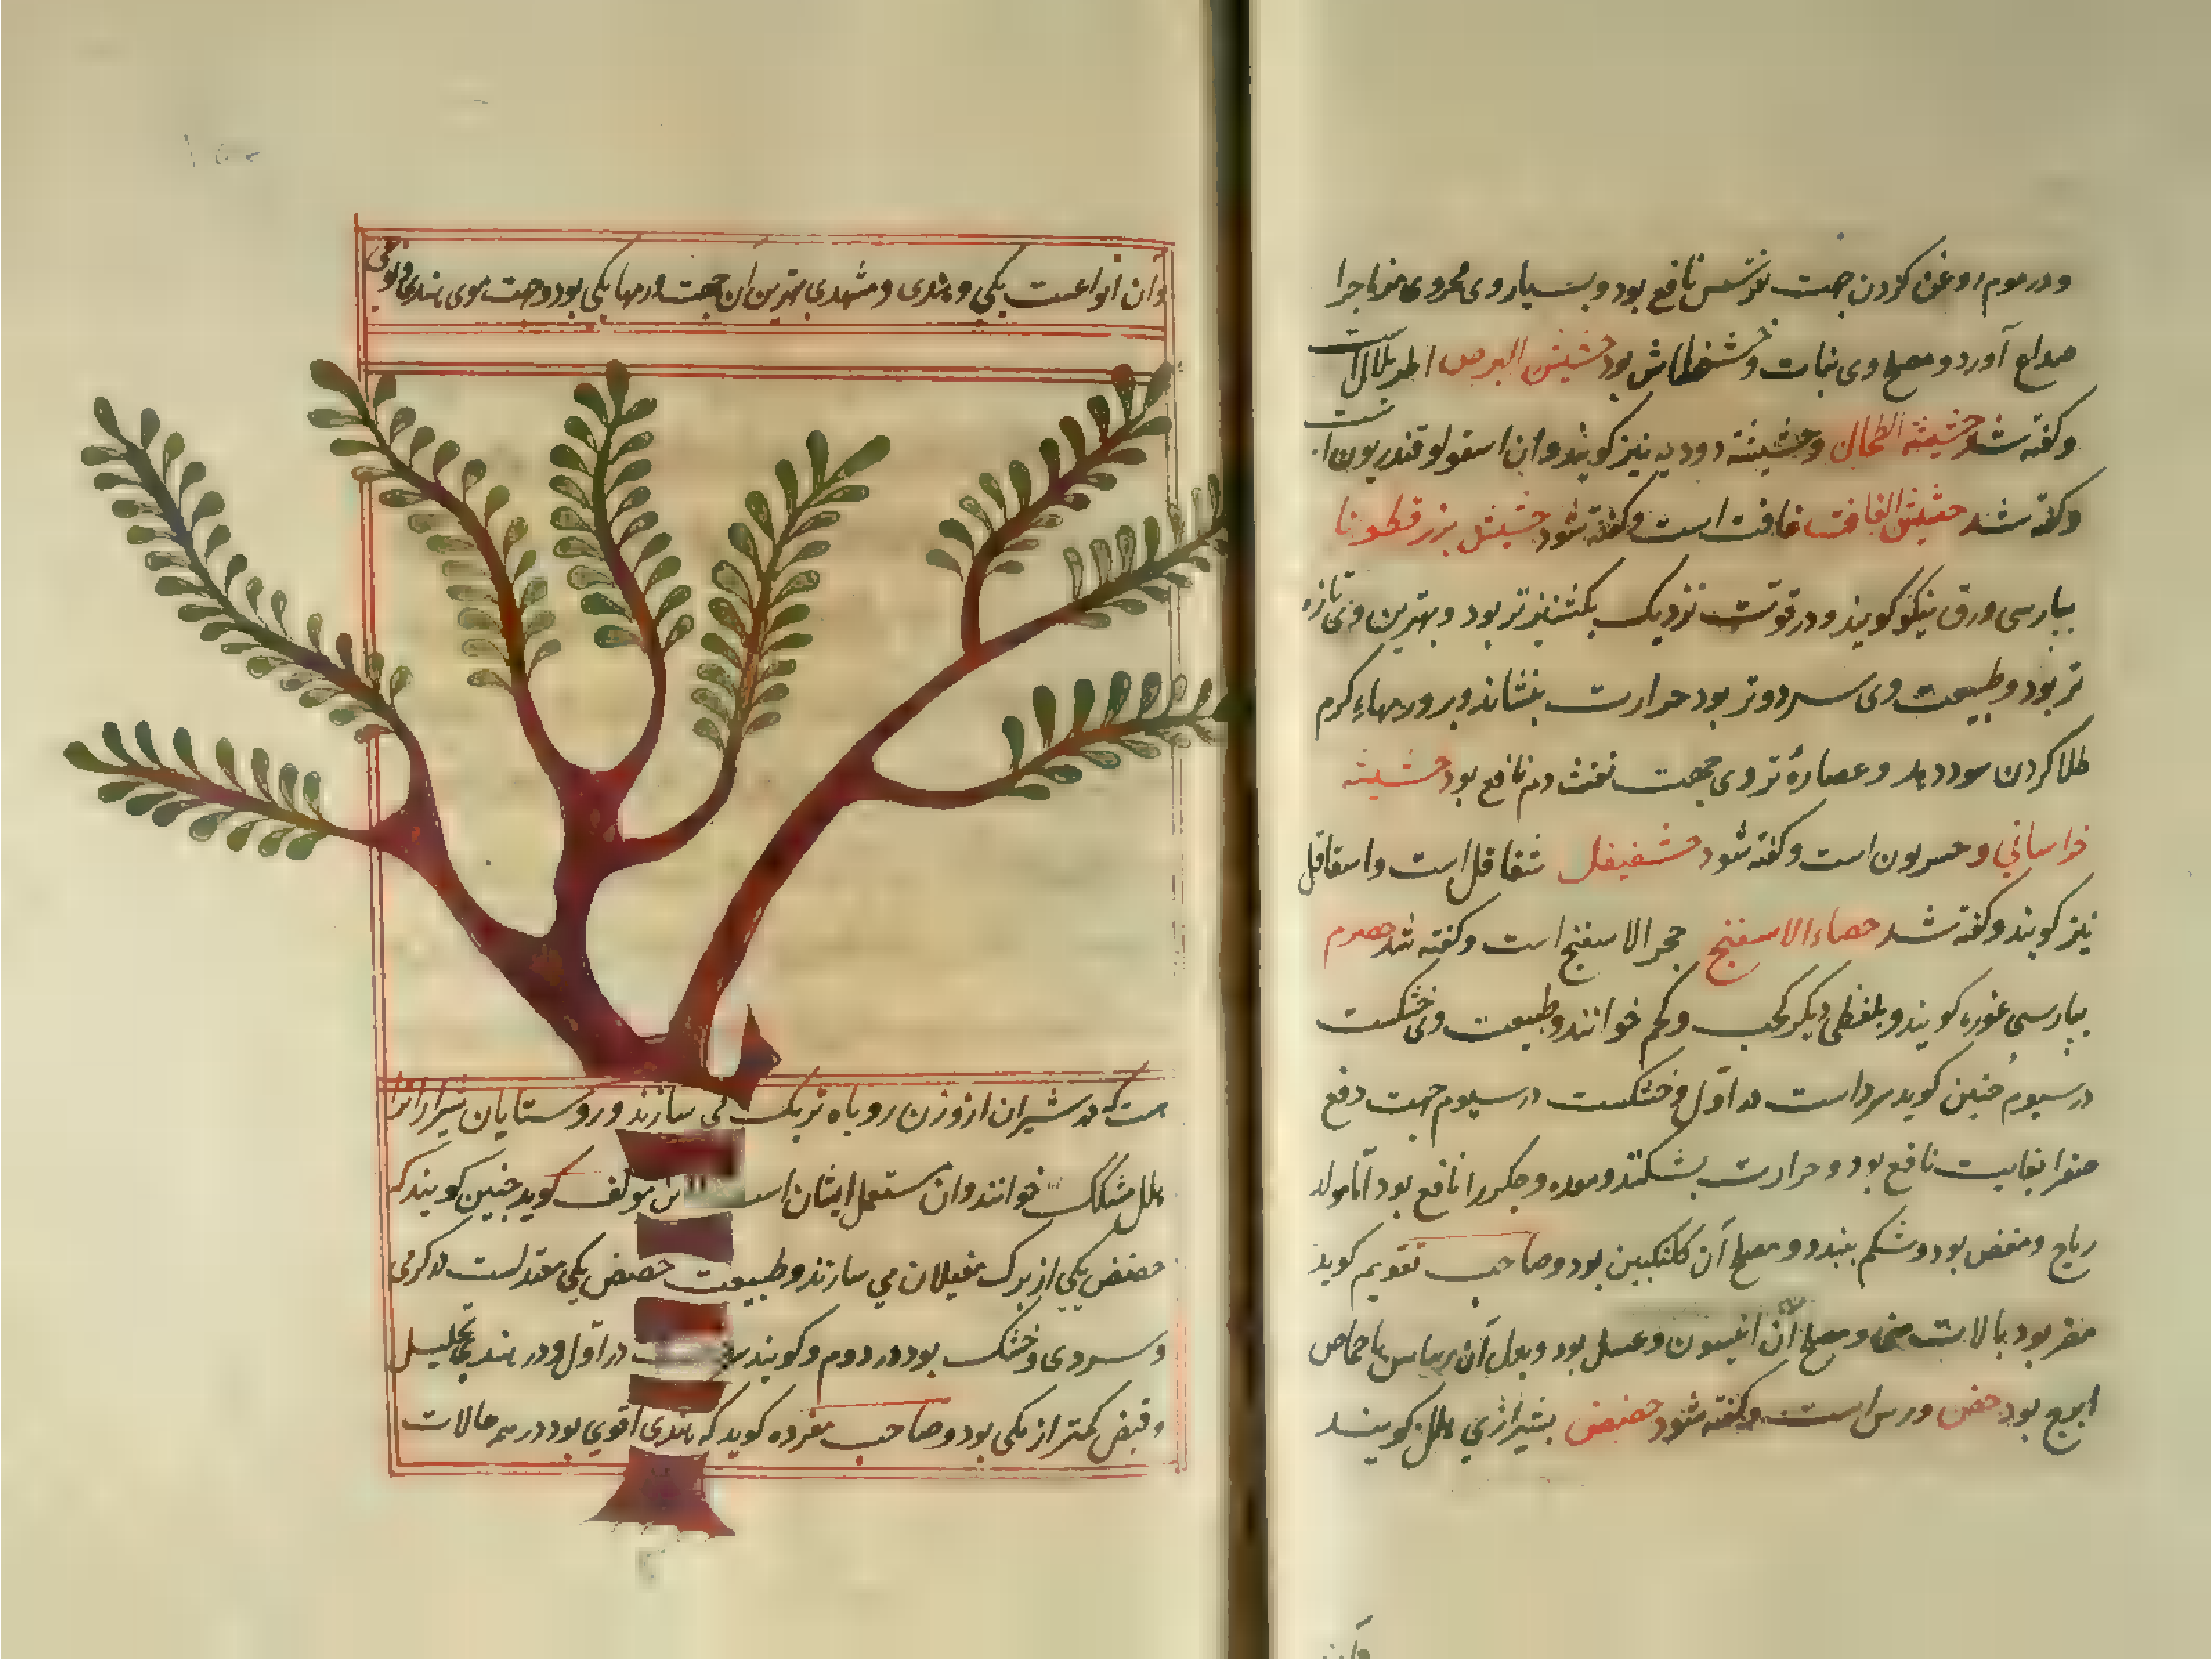 ودر موم روغن کردن جهت نقرس نافع بود و بسیار وی محروی مزاج را
صداع آورد و مصلح وی نبات و خشخاش بود حشیش البرص اطریلال است
وکفته شد حشیشه الطحال وحشیشة دودیه نیز کویند وان اسقولوقندریون است
وکفته شد حشیش الغافت غافت است وکفته شود حشیش بزرقطونا
بپارسی ورق نیکو کویند و در قوت نزدیک بکشنیز تر بود و بهترین وی تازه
تر بود و طبیعت وی سرد و تر بود حرارت بنشاند و بر ورمهاء کرم
طلا کردن سود دهد و عصارهٔ تر وی جهت نفث دم نافع بود حشیشه
خراسانی و است وکفته شود حشفیفل شقاقل است واسقاقل
نیز کویند وکفته شد حصاء الاسفنج حجر الاسفنج است وکفته شد حصرم
بپارسی غوره کویند و بلفظی دیکر کحب وکم خوانند و طبیعت وی خشکست
در سیوم چنین کوید سرد است در اول و خشکست در سیوم جهت دفع
صفرا بغایت نافع بود و حرارت بشکند و معده و جکر را نافع بود اما مولد
ریاح و مغص بود و شکم ببندد و مصلح آن کلنکبین بود و صاحب تقویم کوید
مضر بود بالات منی و مصلح آن انیسون و عسل بود و بدل آن ریباس یا حماض
اترج بود حص ورس است وکفته شود حضض بشیرازی هلل کویند
وان
وان انواعست مکی و هندی و مشهدی بهترین ان جهت ورمها مکی بود و جهت موی هندی
است که در شیراز از وزن روباه تربک می سازند و روستایان شیراز انرا
هلل مشکک خوانند وان مستعمل ایشان است مولف کوید چنین کویند که
حضض مکی از برک مغیلان می سازند و طبیعت حضض مکی معتدلست در کرمی
و سردی و خشک بود در دوم و کویند در اول و در هندی تحلیل
و قبض کمتر از مکی بود و صاحب مفرده کوید که هندی اقوی بود در همه حالات